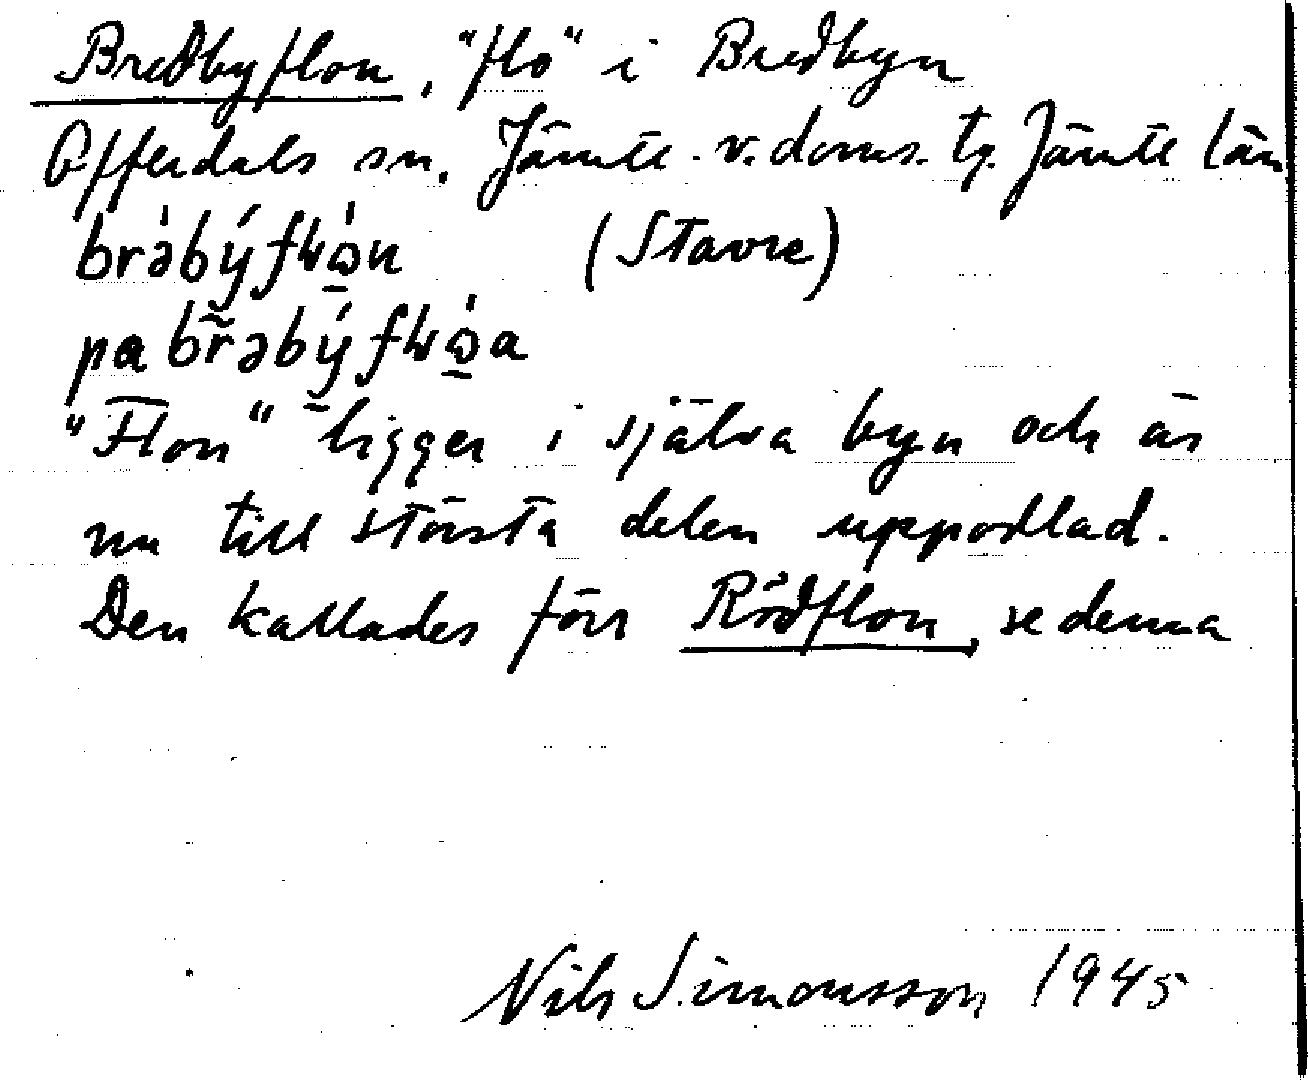 Bredbyflon, "flo" i Bredbyn
Offerdals sn. Jämtl. v. doms. tg. Jämtl län
(Stavre)
"Flon" ligger i själva byn och är
nu till största delen uppodlad.
Den kallades förr Rödflon, se denna
Nils Simonsson 1945